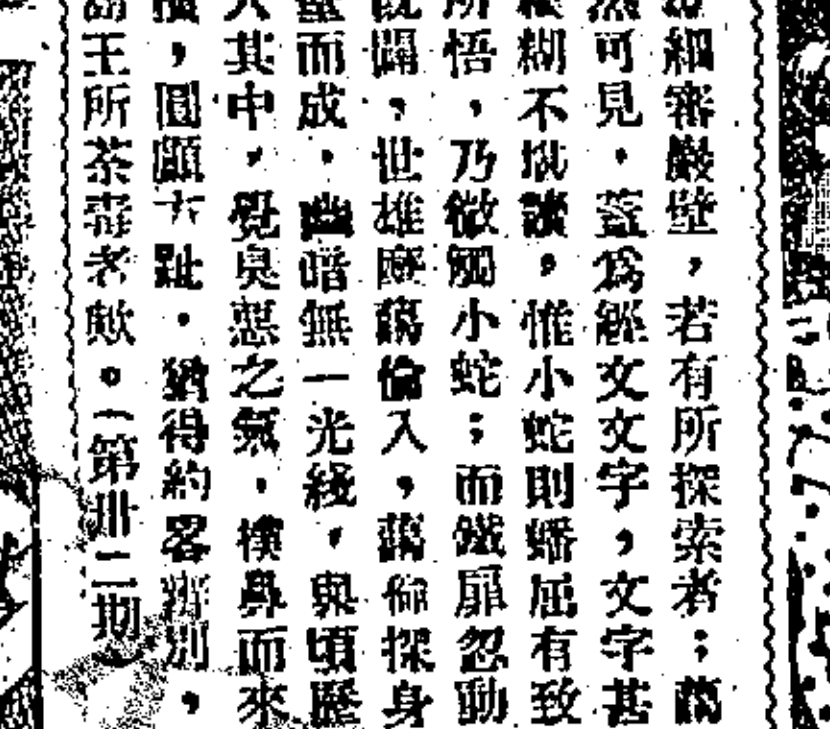 細審巖壁，若有所探索者；藹
然可見，蓋為經文文字，文字甚
糢糊不堪讀，惟小蛇則蟠屈有致
所悟，乃微觸小蛇；而鐵扉忽動
既闢，世雄麼藹偷入，藹倫探身
而成，幽暗無一光綫，與頃歷
入其中，覺臭惡之氣，樸鼻而來
，圓顱方趾，猶得約畧辨別，
王所荼毒者歟。（第卅二期）